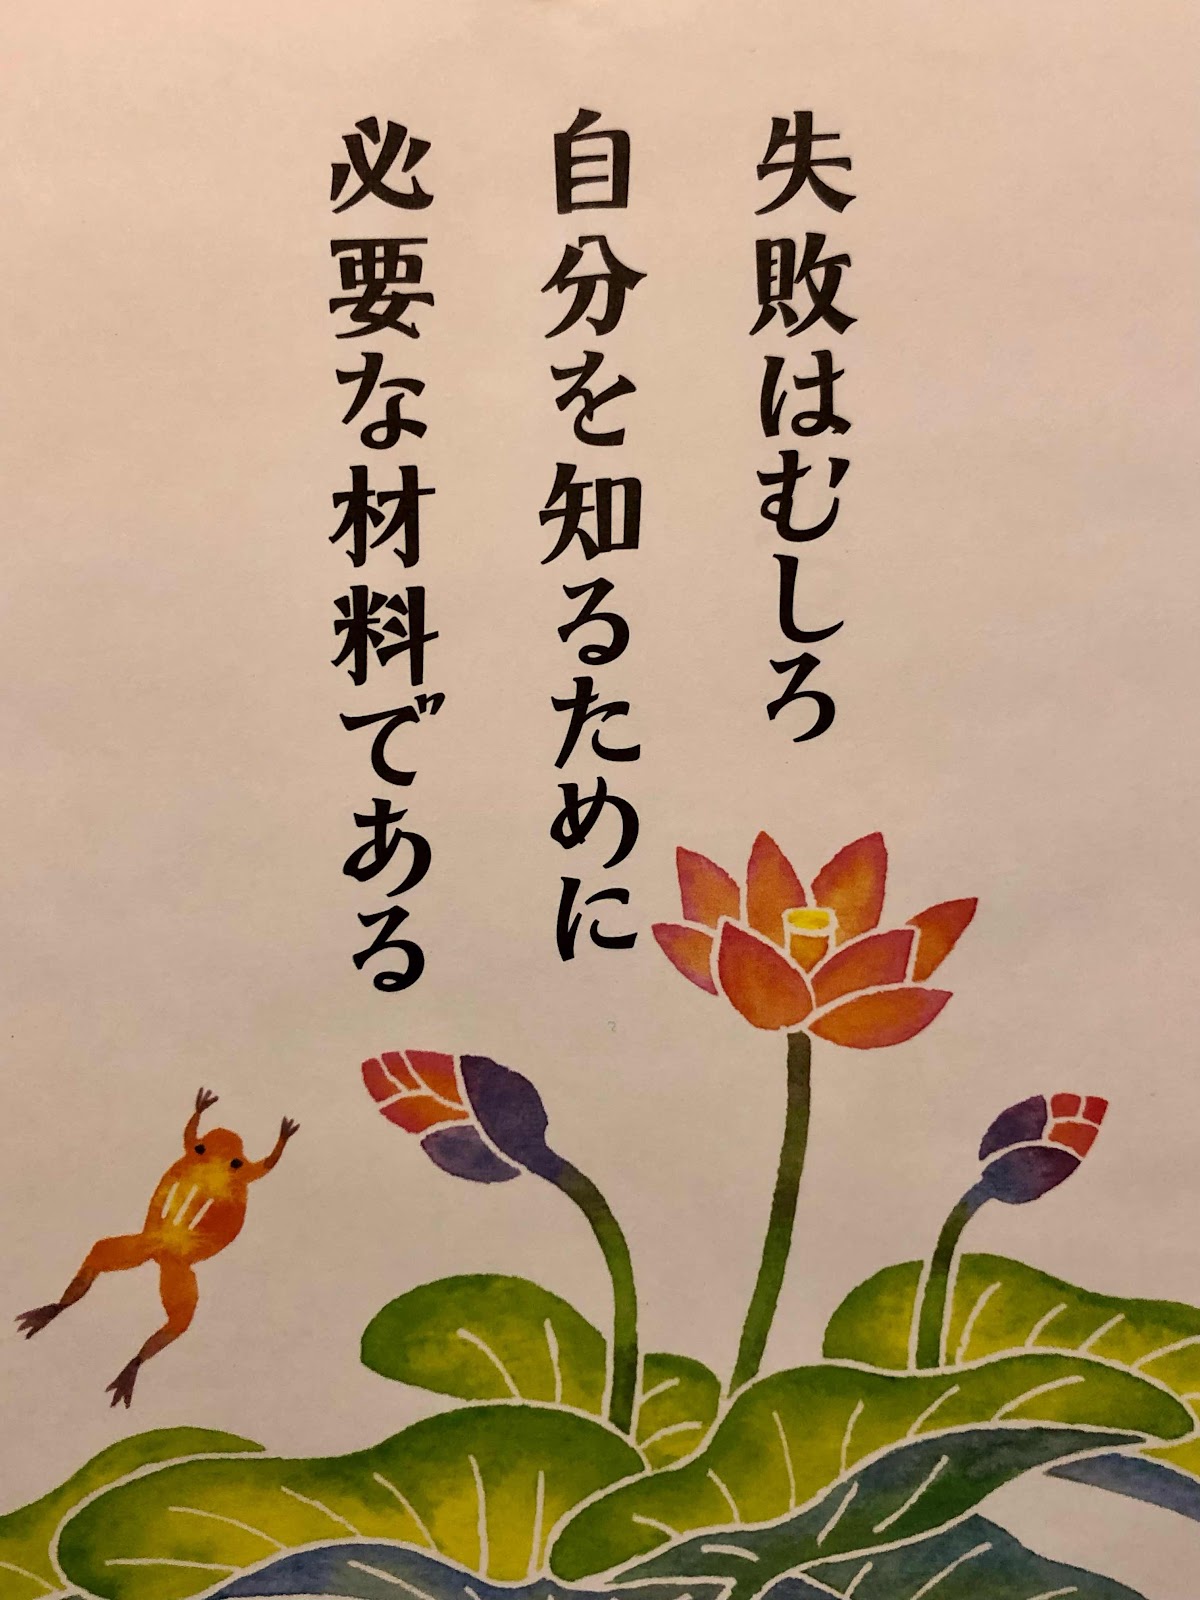 失敗はむしろ
自分を知るために
必要な材料である